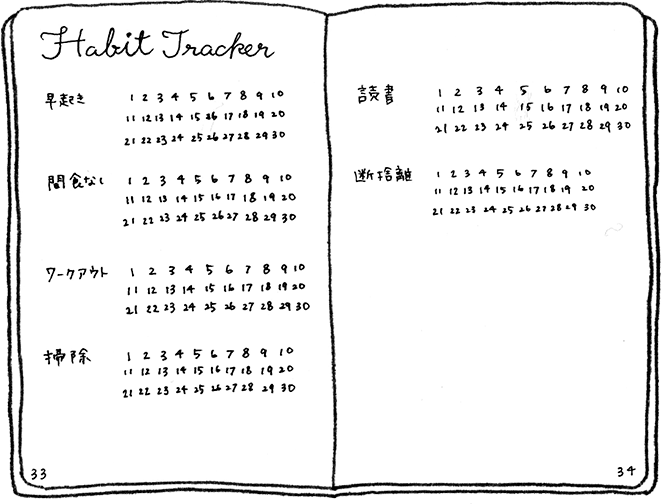 Habit Tracker
早起き 1 2 3 4 5 6 7 8 9 10
11 12 13 14 15 16 17 18 19 20
21 22 23 24 25 26 27 28 29 30
間食なし 1 2 3 4 5 6 7 8 9 10
11 12 13 14 15 16 17 18 19 20
21 22 23 24 25 26 27 28 29 30
ワークアウト 1 2 3 4 5 6 7 8 9 10
11 12 13 14 15 16 17 18 19 20
21 22 23 24 25 26 27 28 29 30
掃除 1 2 3 4 5 6 7 8 9 10
11 12 13 14 15 16 17 18 19 20
21 22 23 24 25 26 27 28 29 30
33
読書 1 2 3 4 5 6 7 8 9 10
11 12 13 14 15 16 17 18 19 20
21 22 23 24 25 26 27 28 29 30
断捨離 1 2 3 4 5 6 7 8 9 10
11 12 13 14 15 16 17 18 19 20
21 22 23 24 25 26 27 28 29 30
34